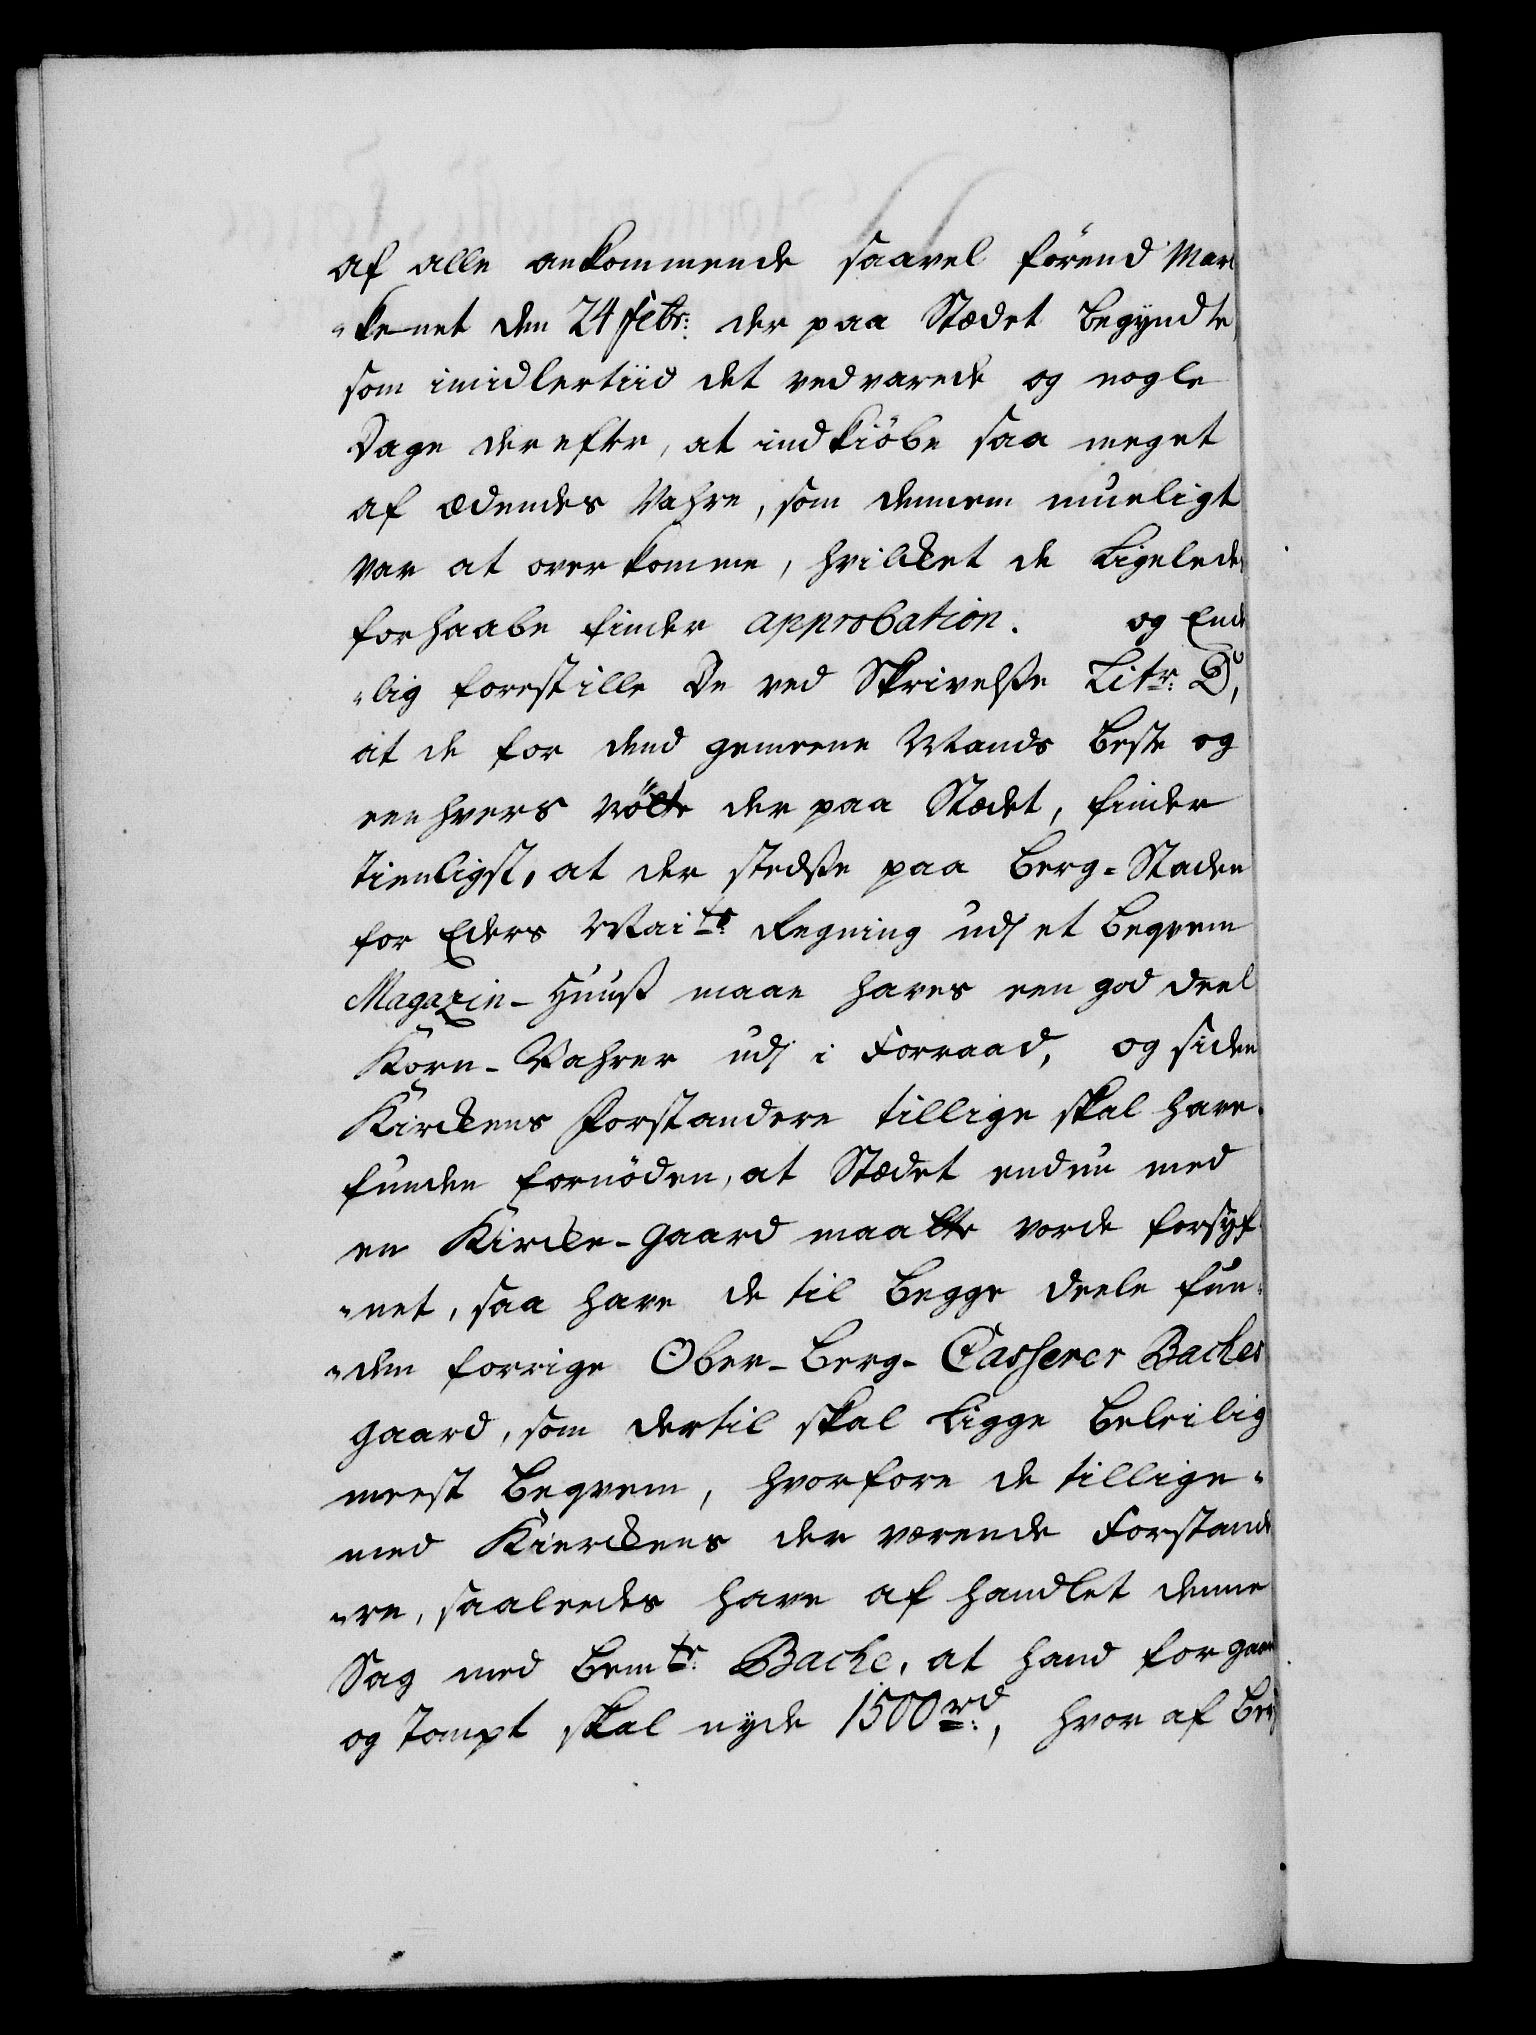 af alle ankommende saavel förend Mar
"kenet den 24 Febr: der paa Stædet begyndte,
som imidlertiid det vedvarede og nogle
Dage derefter, at indkiöbe saa meget
af ædendes Vahre, som dennem mueligt
var at overkomme, hvilcket de ligelede
forhaabe finder approbation. og End
"lig forestille De ved Skrivelße Litr: D,
at de for dend gemeene Mands beste og
een hvers nötte der paa Stædet, finder
tienligst, at der stedße paa Berg-Staden
for Eders Maits: Regning udj et beqvem
Magazin-Huuß maae haves een god deel
Korn-Vahrer udj i Forraad, og siden
Kirckens Forstandere tillige skal have
funden fornöden, at Stædet endnu med
en Kircke-Gaard maatte vorde forsyf
"net, saa have de til begge deele fun-
"den forrige Ober-Berg-Casserer Baches
gaard, som dertil skal ligge beleilig
meest beqvem, hvorfore de tillige-
med Kierckens der værende Forstand
"re, saaledes have af handlet denne
Sag med bemte: Bache, at hand for gaar
og Tompt skal nyde 1500 rd:, hvor af Ber